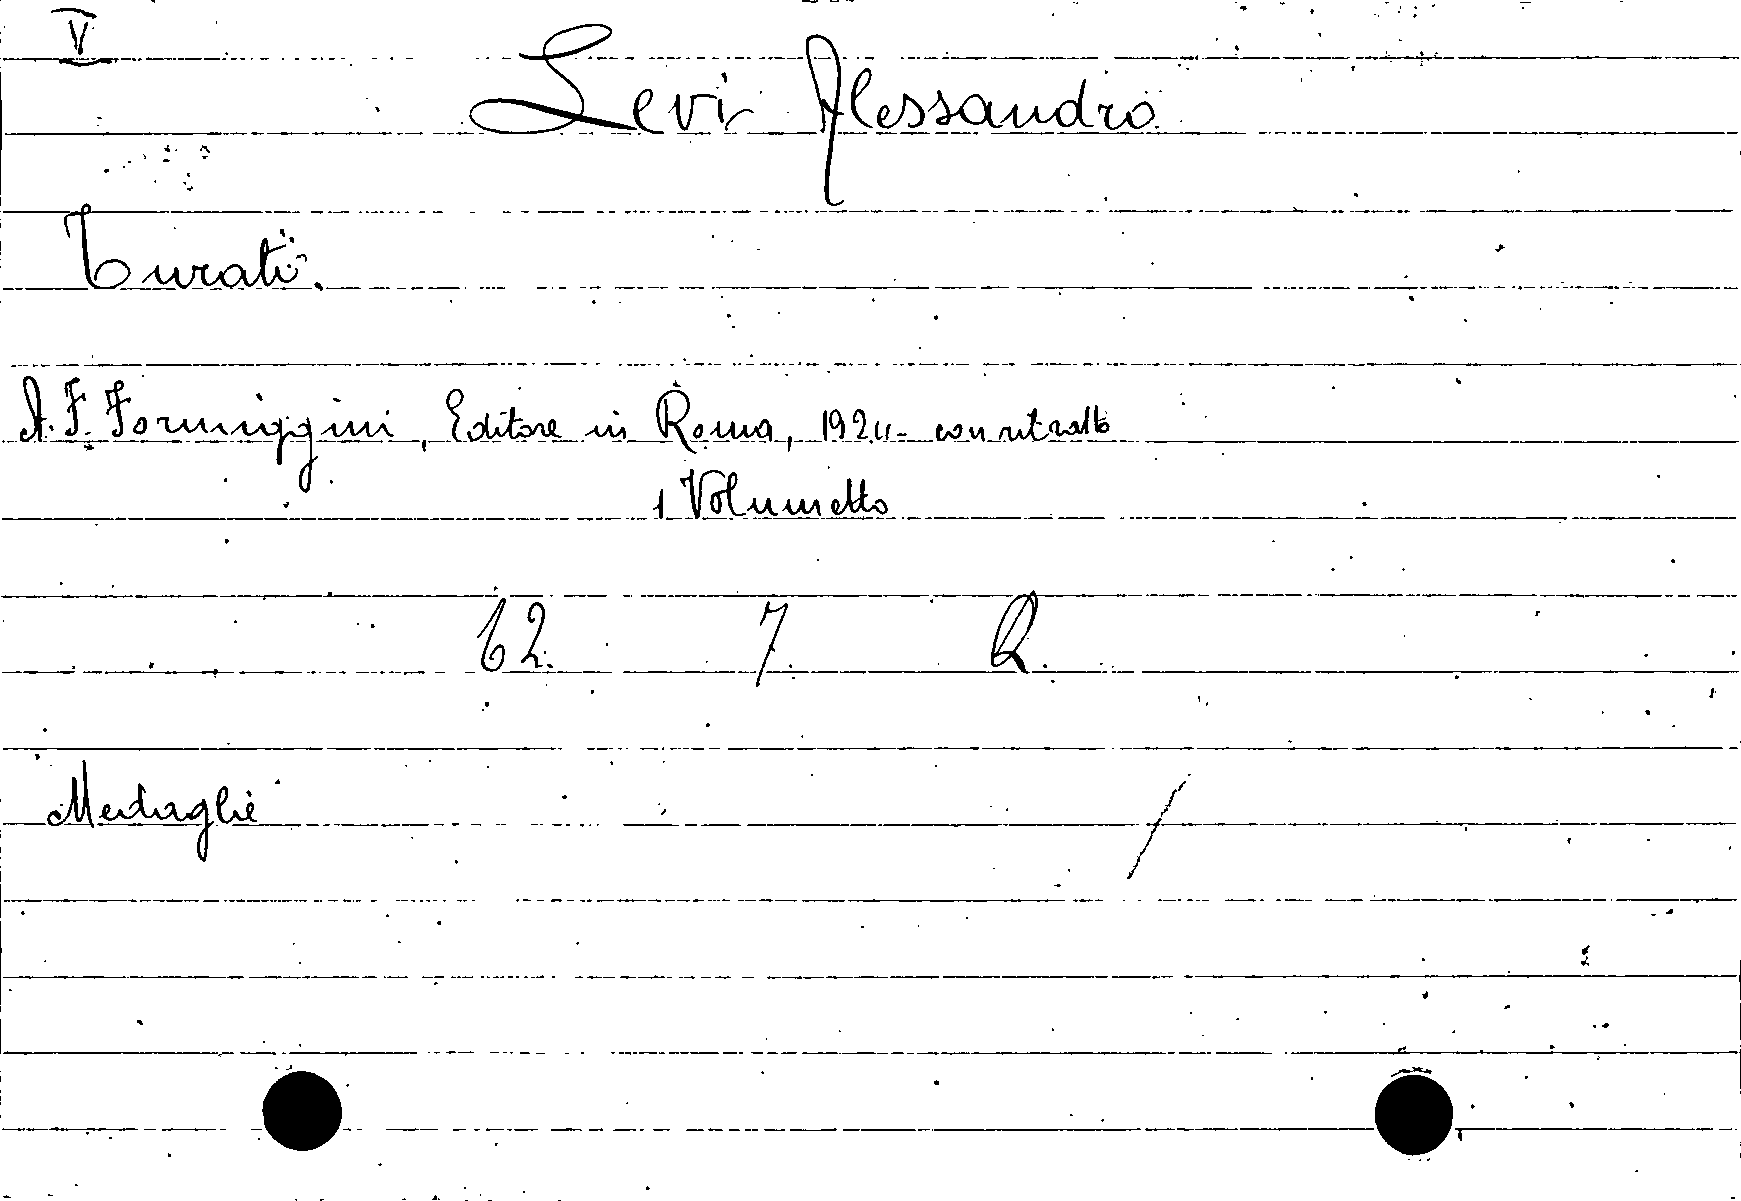 V
Levi Alessandro
Turati.
A. F. Formiggini, Editore in Roma, 1924 - con ritratto
1 Volumetto
62. 7. Q.
Medaglie